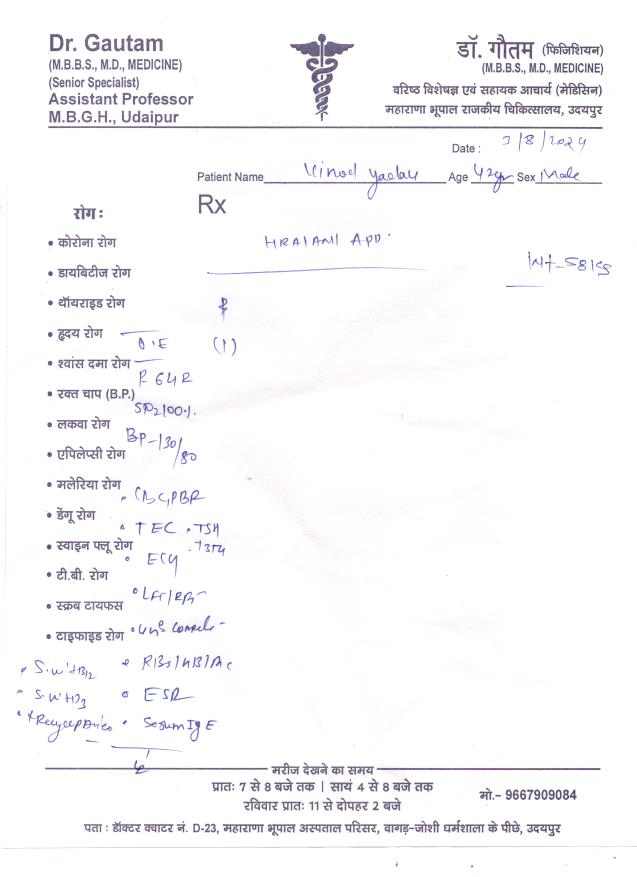 Dr. Gautam
(M.B.B.S., M.D., MEDICINE)
(Senior Specialist)
Assistant Professor
M.B.G.H., Udaipur
डॉ. गौतम (फिजिशियन)
(M.B.B.S., M.D., MEDICINE)
वरिष्ठ विशेषज्ञ एवं सहायक आचार्य (मेडिसिन)
महाराणा भूपाल राजकीय चिकित्सालय, उदयपुर
Date : 3/8/2024
Patient Name Vinod Yadav Age 42yr Sex Male
Rx
रोग :
• कोरोना रोग
• डायबिटीज रोग
• थॉयराइड रोग
• हृदय रोग
O.E (1)
• श्वांस दमा रोग
• रक्त चाप (B.P.)
SPO2 100%
• लकवा रोग
BP-130/80
• एपिलेप्सी रोग
• मलेरिया रोग
• CBC, PBR
• डेंगू रोग
• TEC • TSH
• स्वाइन फ्लू रोग
• ECG
• टी.बी. रोग
• LFT/RFT
• स्क्रब टायफस
• टाइफाइड रोग
• ESR
• Serum IgE
मरीज देखने का समय
प्रातः 7 से 8 बजे तक | सायं 4 से 8 बजे तक
रविवार प्रातः 11 से दोपहर 2 बजे
मो.- 9667909084
पता : डॉक्टर क्वाटर नं. D-23, महाराणा भूपाल अस्पताल परिसर, वागड़-जोशी धर्मशाला के पीछे, उदयपुर